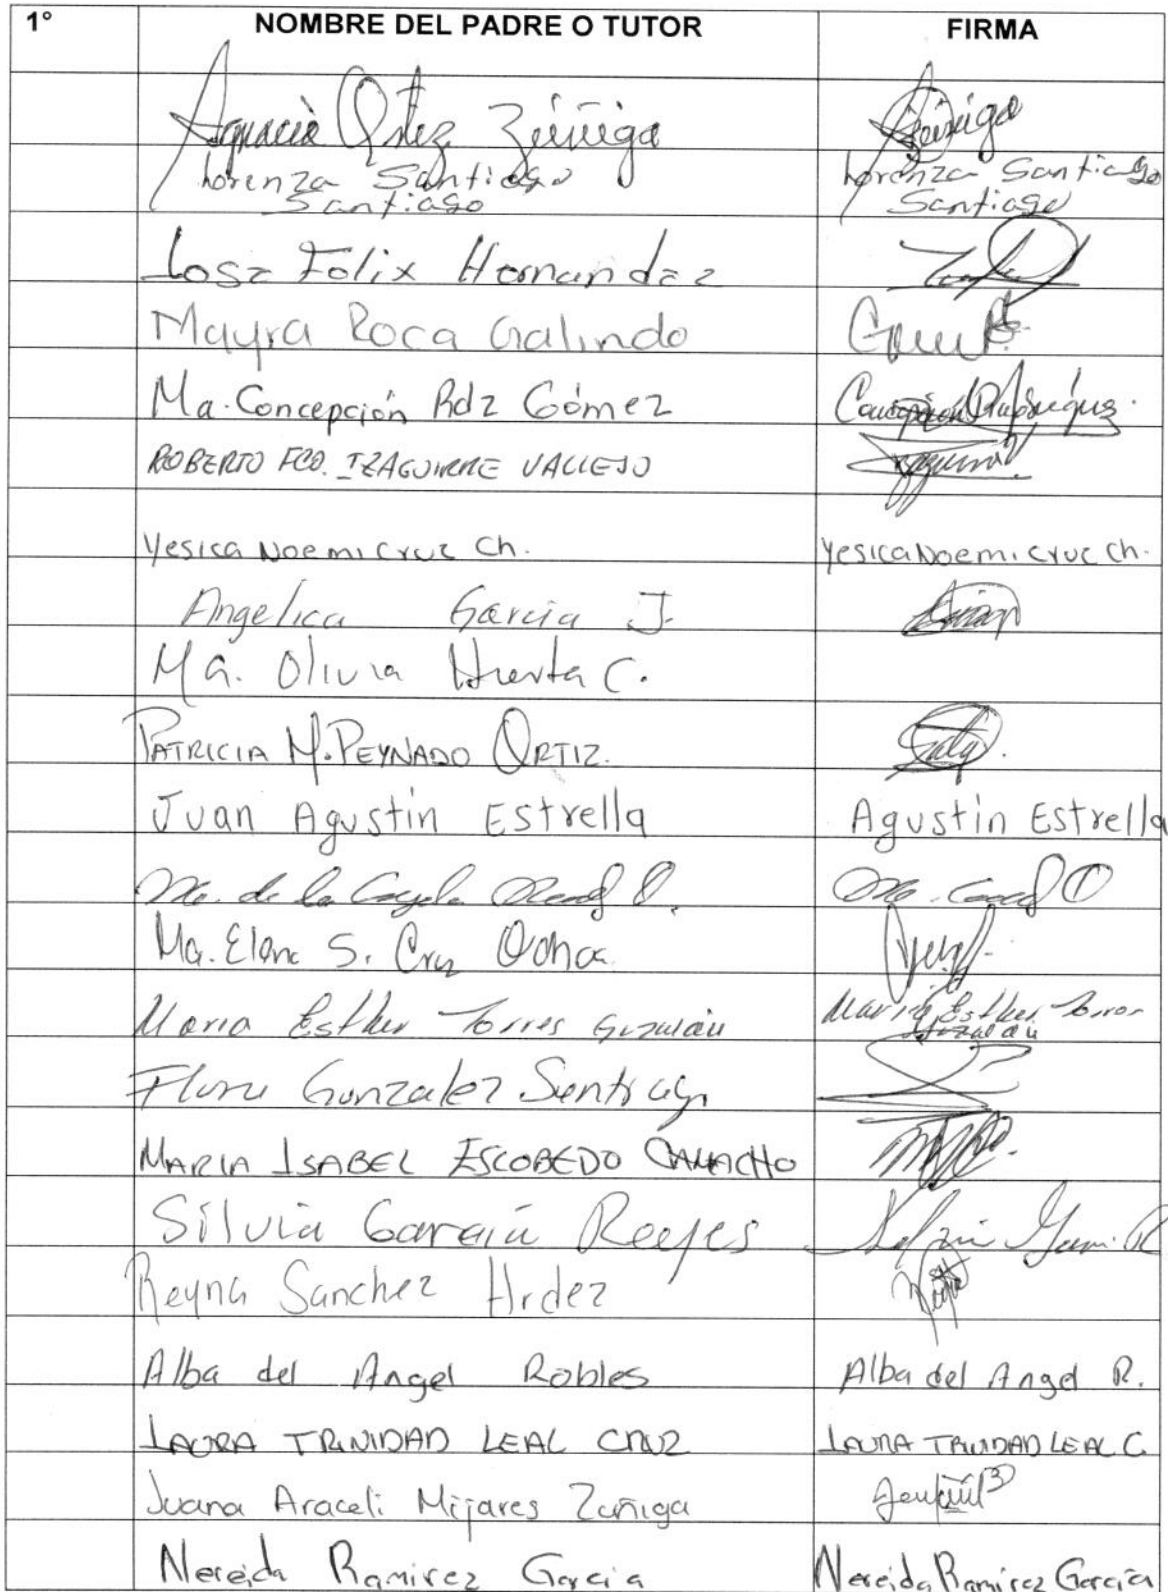 1° NOMBRE DEL PADRE O TUTOR FIRMA
Ortiz Zúñiga Zúñiga
Lorenza Santiago Lorenza Santiago
Santiago Santiago
José Felix Hernandez
Mayra Roca Galindo
Ma. Concepción Rdz Gómez Concepción Rodríguez.
ROBERTO FCO. IZAGUIRRE VALLEJO
Yesica Noemi Cruz Ch. Yesica Noemi Cruz Ch.
Angelica Garcia J.
Ma. Olivia Huerta C.
PATRICIA M. PEYNADO ORTIZ.
Juan Agustin Estrella Agustin Estrella
Ma. de la
Ma. Elena S. Cruz Ochoa
Maria Esther Torres Guzmán Maria Esther Torres
Guzmán
Gonzalez Santiago
MARIA ISABEL ESCOBEDO CAMACHO
Silvia García Reyes
Reyna Sanchez Hrdez
Alba del Angel Robles Alba del Angel R.
LAURA TRINIDAD LEAL CRUZ LAURA TRINIDAD LEAL C.
Juana Araceli Mijares Zuñiga
Nereida Ramirez Garcia Nereida Ramirez Garcia